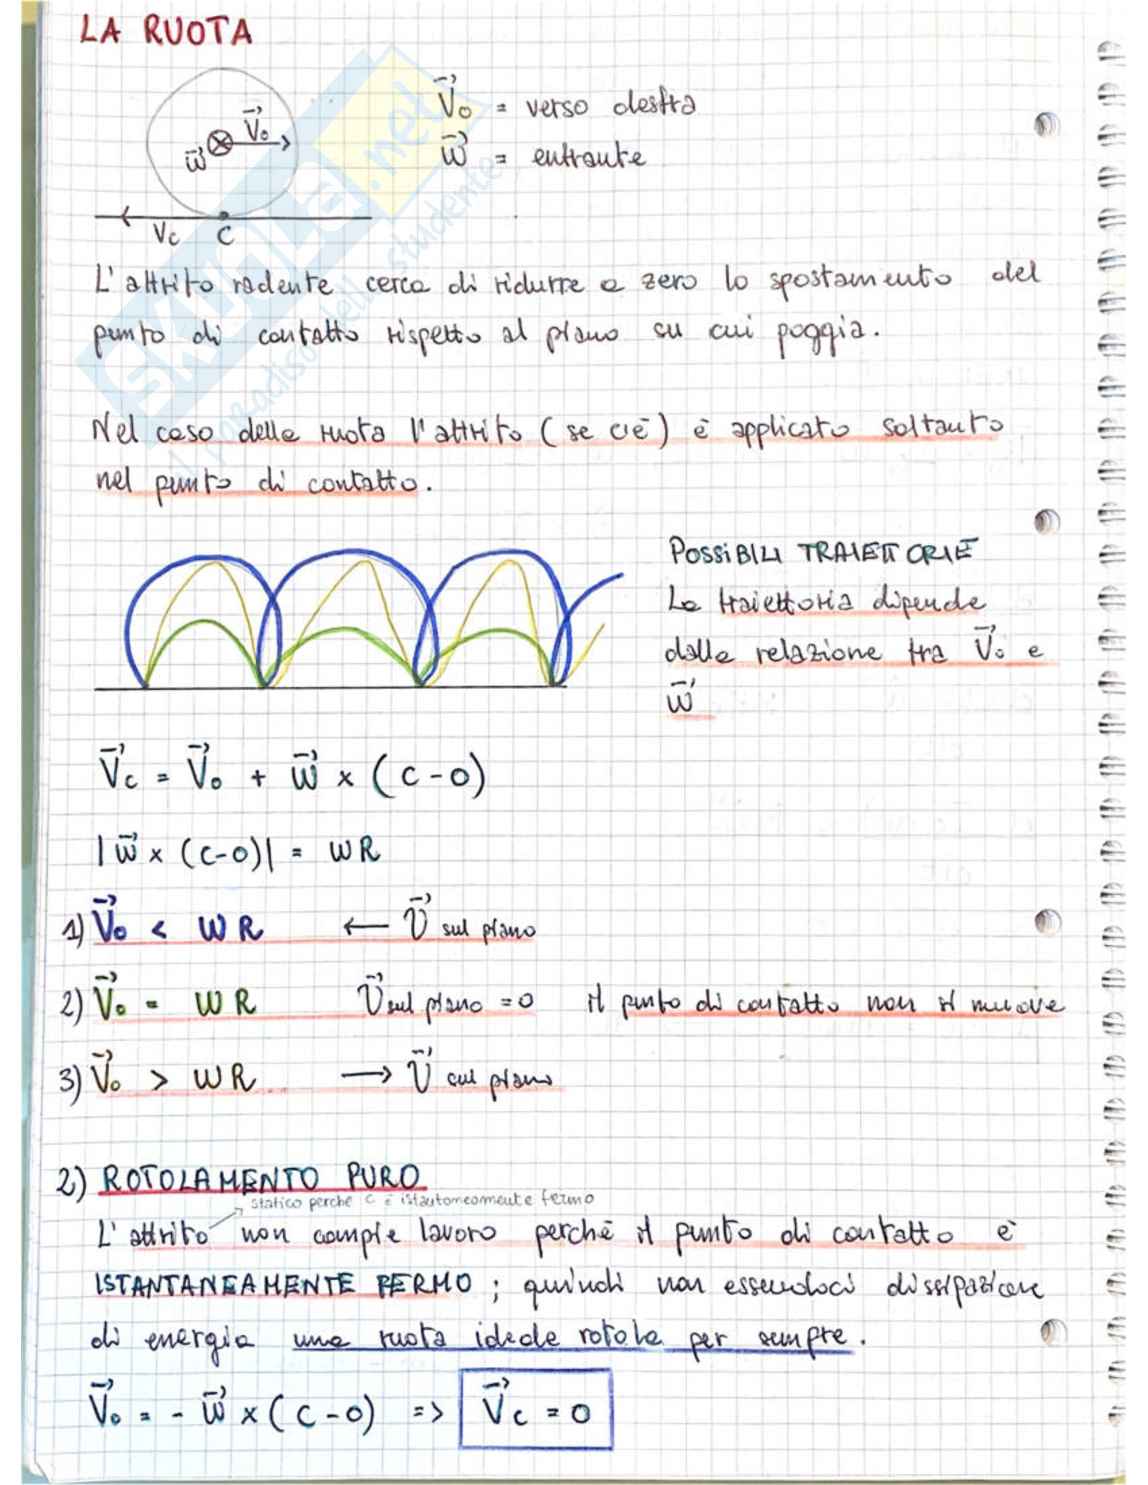 LA RUOTA
V⃗o = verso destra
V⃗o
w⃗
w⃗ = entrante
Vc C
L'attrito radente cerca di ridurre a zero lo spostamento del
punto di contatto rispetto al piano su cui poggia.
Nel caso della ruota l'attrito (se c'è) è applicato soltanto
nel punto di contatto.
POSSIBILI TRAIETTORIE
La traiettoria dipende
dalla relazione tra V⃗o e
w⃗
V⃗c = V⃗o + w⃗ × (C-O)
|w⃗ × (C-O)| = WR
1) V⃗o < WR ← V⃗ sul piano
2) V⃗o = WR V⃗ sul piano = 0 il punto di contatto non si muove
3) V⃗o > WR → V⃗ sul piano
2) ROTOLAMENTO PURO
statico perché C è istantaneamente fermo
L'attrito non compie lavoro perché il punto di contatto è
ISTANTANEAMENTE FERMO; quindi non essendoci dissipazione
di energia una ruota ideale rotola per sempre.
V⃗o = - w⃗ × (C-O) => V⃗c = 0
SKUOLA.net
il paradiso dello studente